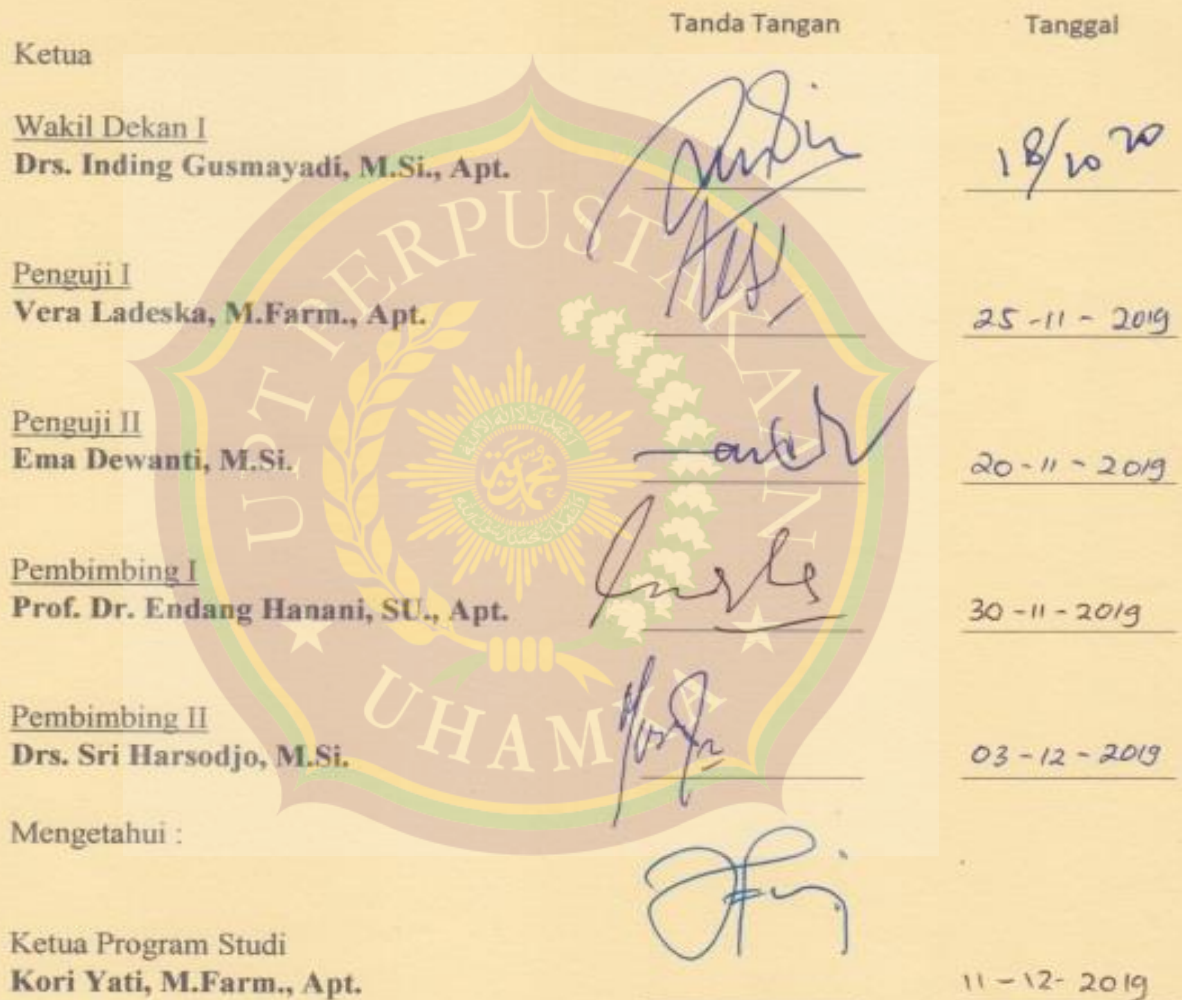 Tanda Tangan Tanggal
Ketua
Wakil Dekan I
Drs. Inding Gusmayadi, M.Si., Apt. 18/10 20
UPT PERPUSTAKAAN
Penguji I
Vera Ladeska, M.Farm., Apt. 25-11-2019
Penguji II
Ema Dewanti, M.Si. 20-11-2019
Pembimbing I
Prof. Dr. Endang Hanani, SU., Apt. 30-11-2019
UHAMKA
Pembimbing II
Drs. Sri Harsodjo, M.Si. 03-12-2019
Mengetahui :
Ketua Program Studi
Kori Yati, M.Farm., Apt. 11-12-2019